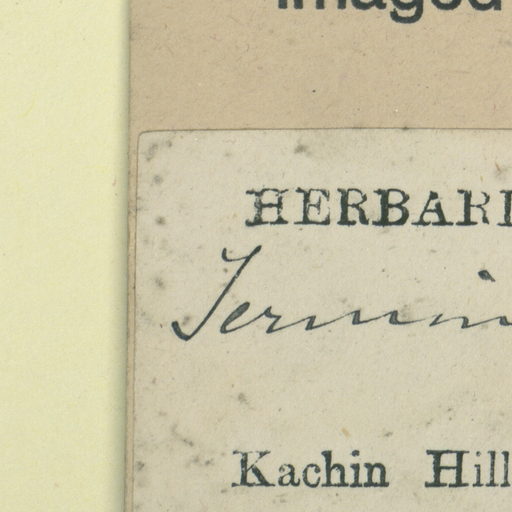 Imaged
HERBARI
Termin
Kachin Hill